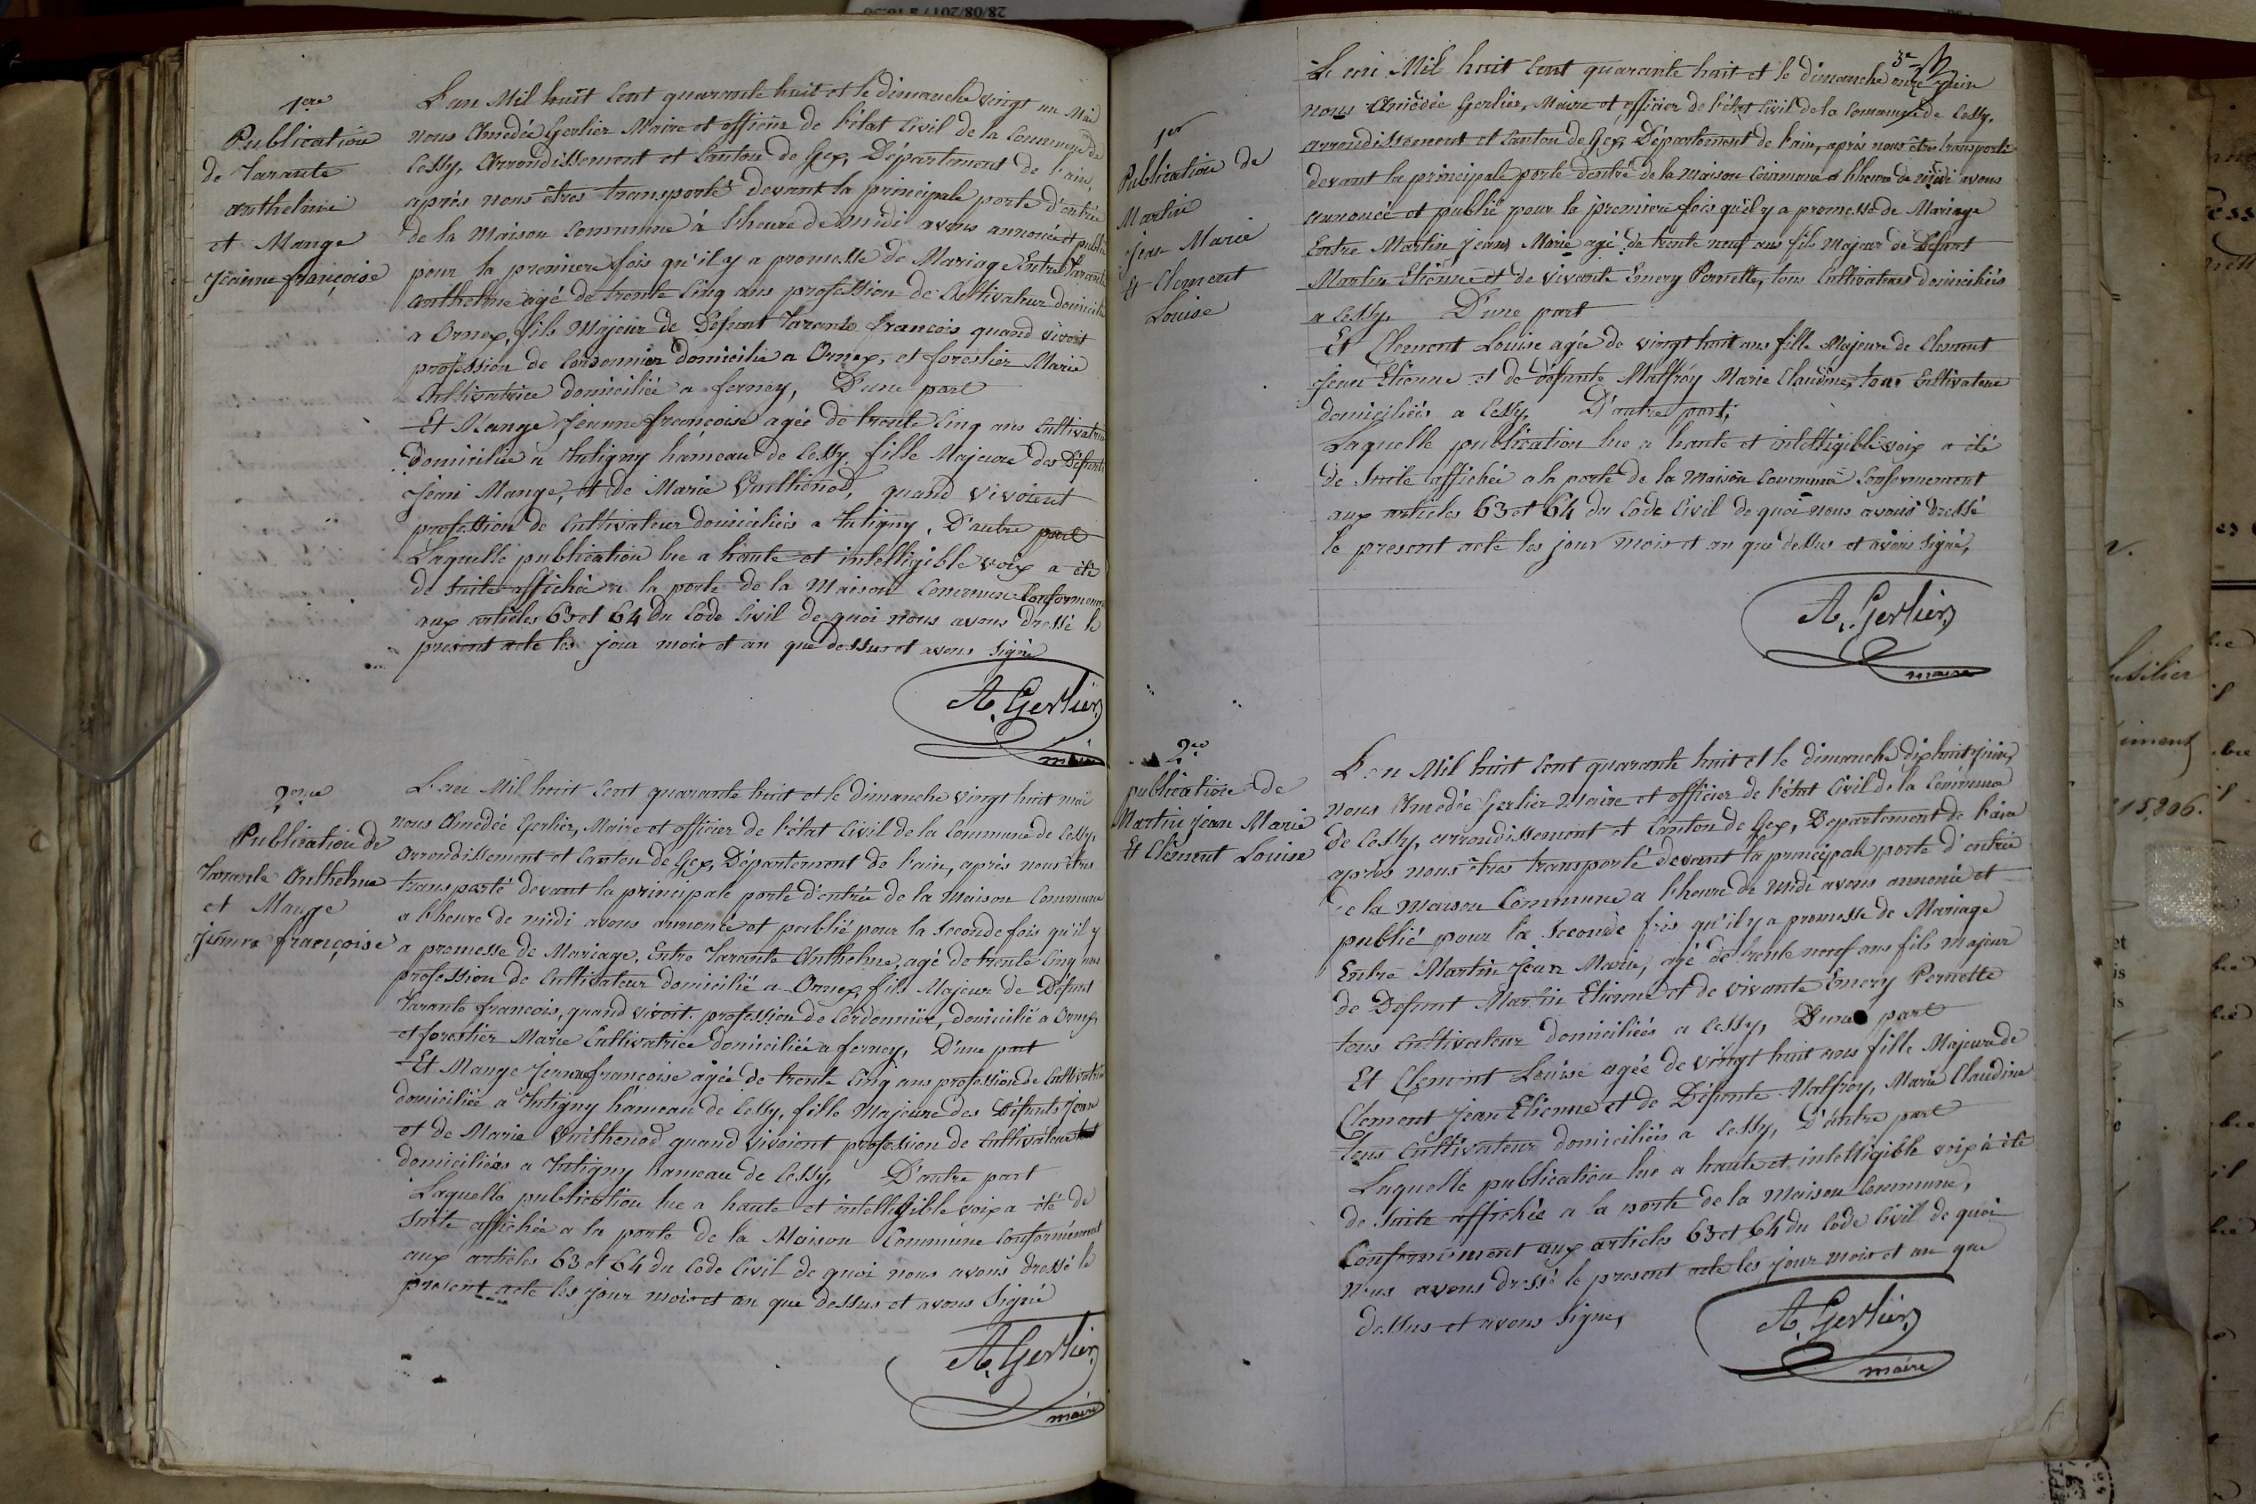 28/08/2017 à 16:56
1ere
Publication
de Tarante
anthelme
et Mange
Jeanne françoise
L'an Mil huit Cent quarante huit et le dimanche vingt un Mai
nous Amédée Gerlier Maire et officier de l'état Civil de la Commune de
Cessy, Arrondissement et Canton de Gex, Département de l'ain,
après nous êtres transporté devant la principale porte d'entrée
de la Maison Commune à l'heure de midi avons annoncé et publié
pour la premiere fois qu'il y a promesse de Mariage Entre Tarante
anthelme agé de trente Cinq ans profession de Cultivateur domicilié
a Ornex, fils Majeur de Défunt Tarante francois quand vivoit
profession de Cordonnier domicilié a Ornex, et forestier Marie
Cultivatrice domiciliée a ferney, D'une part
Et Mange Jeanne françoise agée de trente Cinq ans Cultivatrice
Domiciliée a Tutigny hameau de Cessy fille Majeure des Défunts
Jean Mange, et de Marie Vuithenod, quand vivoient
profession de Cultivateur domiciliés a Tutigny, D'autre part
Laquelle publication lue a haute et intelligible voix a été
de suite affichée a la porte de la Maison Commune Conformement
aux articles 63 et 64 du Code Civil de quoi nous avons dressé le
present acte les jour mois et an que dessus et avons signé
A. Gerlier
maire
2eme
Publication de
Tarante Anthelme
et Mange
Jeanne françoise
L'an Mil huit Cent quarante huit et le dimanche vingt huit mai
nous Amedée Gerlier, Maire et officier de l'état Civil de la Commune de Cessy,
Arrondissement et Canton de Gex, Département de l'ain, après nous êtres
transporté devant la principale porte d'entrée de la Maison Commune
a l'heure de midi avons annoncé et publié pour la seconde fois qu'il y
a promesse de Mariage, Entre Tarante Anthelme, agé de trente Cinq ans
profession de Cultivateur domicilié a Ornex, fils Majeur de Défunt
Tarante francois, quand vivoit profession de Cordonnier, domicilié a Ornex
et forestier Marie Cultivatrice domiciliée a ferney, D'une part
Et Mange Jeanne françoise agée de trente Cinq ans profession de Cultivatrice
domiciliée a Tutigny hameau de Cessy, fille Majeure des Défunts Jean
et de Marie Vuithenod quand vivoient profession de Cultivateur
domiciliés a Tutigny hameau de Cessy, D'autre part
Laquelle publication lue a haute et intelligible voix a été de
suite affichée a la porte de la Maison Commune Conformément
aux articles 63 et 64 du Code Civil de quoi nous avons dressé le
present acte les jour mois et an que dessus et avons signé
A. Gerlier
maire
1er
Publication de
Martin
Jean Marie
Et Clement
Louise
L'an Mil huit Cent quarante huit et le dimanche onze Juin
nous Amédée Gerlier, Maire et officier de l'état Civil de la Commune de Cessy,
arrondissement et Canton de Gex, Département de l'ain, après nous êtres transporté
devant la principale porte d'entré de la Maison Commune a l'heure de midi avons
annoncé et publié pour la premiere fois qu'il y a promesse de Mariage
Entre Martin Jean Marie agé de trente neuf ans fils Majeur de Défunt
Martin Etienne et de vivante Emery Pernette, tous Cultivateurs domiciliés
a Cessy, D'une part
Et Clement Louise agée de vingt huit ans fille Majeure de Clement
Jean Etienne et de défunte Malfroy Marie Claudine, tous Cultivateur
domiciliés a Cessy, D'autre part,
Laquelle publication lue a haute et intelligible voix a été
de suite affichée a la porte de la Maison Commune Conformement
aux articles 63 et 64 du Code Civil de quoi nous avons dressé
le present acte les jour mois et an que dessus et avons signé,
A. Gerlier
maire
2ee
publication de
Martin jean Marie
Et Clément Louise
L'an Mil huit Cent quarante huit et le dimanche dix huit Juin,
nous Amedée Gerlier Maire et officier de l'état Civil de la Commune
de Cessy, arrondissement et Canton de Gex, Departement de l'ain
après nous êtres transporté devant la principale porte d'entrée
de la Maison Commune a l'heure de midi avons annoncé et
publié pour la seconde fois qu'il y a promesse de Mariage
Entre Martin Jean Marie, agé de trente neuf ans fils Majeur
de Defunt Martin Etienne et de vivante Emery Pernette
tous cultivateur domiciliés a Cessy, D'une part
Et Clement Louise agée de vingt huit ans fille Majeure de
Clement Jean Etienne et de Défunte Malfroy, Marie Claudine
tous Cultivateur domiciliés a Cessy, D'autre part
Laquelle publication lue a haute et intelligible voix a été
de suite affichée a la porte de la Maison Commune,
Conformément aux articles 63 et 64 du Code Civil de quoi
nous avons dressé le present acte les jour mois et an que
dessus et avons signé,
A. Gerlier
maire
15,206.